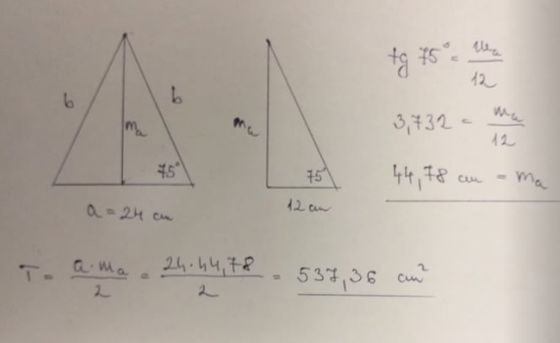 b
b
mₐ
75°
a = 24 cm
mₐ
75°
12 cm
tg 75° = mₐ/12
3,732 = mₐ/12
44,78 cm = mₐ
T = a·mₐ/2 = 24·44,78/2 = 537,36 cm²